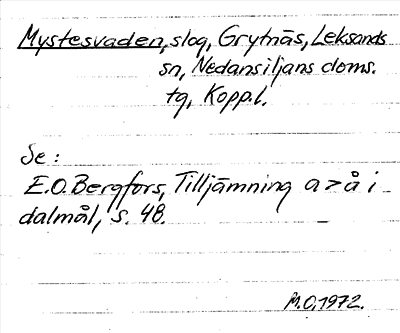 Mystesvaden, slog, Grytnäs, Leksands
sn, Nedansiljans doms.
tg, Kopp.l.
Se:
E.O. Bergfors, Tilljämning a > å i
dalmål, s. 48.
M.O. 1972.